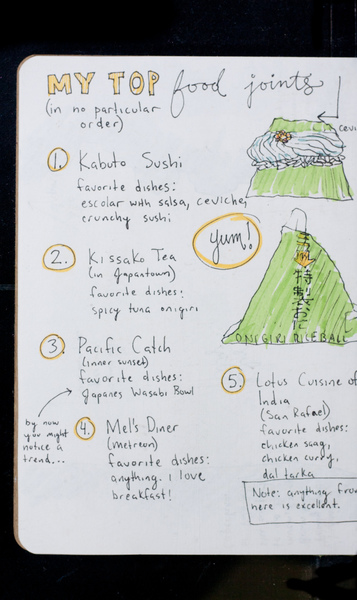 MY TOP food joints
(in no particular
order)
1. Kabuto Sushi
favorite dishes:
escolar with salsa, ceviche,
crunchy sushi
2. Kissako Tea
(in Japantown)
favorite dishes:
spicy tuna onigiri
3. Pacific Catch
(inner sunset)
favorite dishes:
Japanes Wasabi Bowl
by now
you might
notice a
trend...
4. Mel's Diner
(metreon)
favorite dishes:
anything. i love
breakfast!
cevi
yum!
特製おに
ONIGIRI RICEBALL
5. Lotus Cuisine of
India
(San Rafael)
favorite dishes:
chicken saag,
chicken curry,
dal tarka
Note: anything fro
here is excellent.